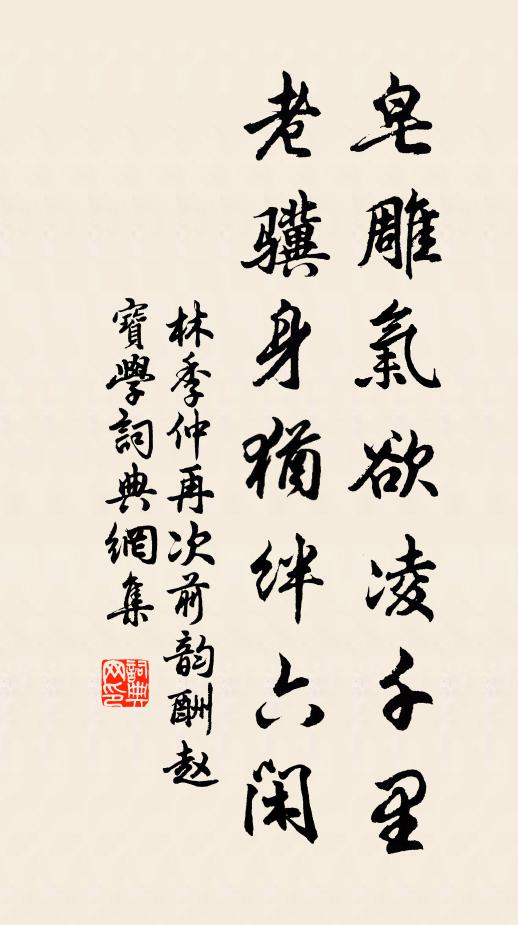 皂雕氣欲凌千里
老驥身猶絆六閑
林季仲再次前韵酬赵
寶學詞典網集
詞典
网印